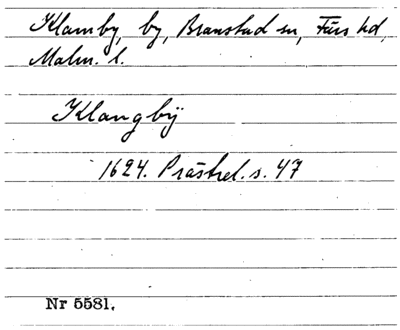 Klamby, by, Branstad sn, Färs hd,
Malm. l.
Klangbÿ
1624. Prästrel. s. 47
Nr 5581.